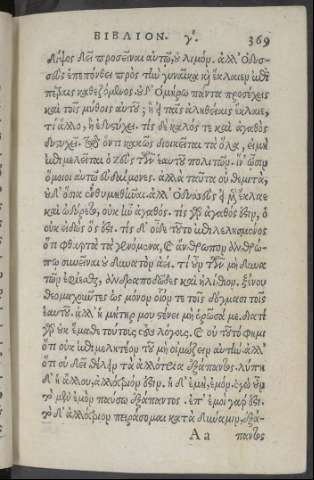 ΒΙΒΛΙΟΝ. γʹ. 369
λῆθος δεῖ προσεῖναι αὐτῷ, οὐ λιμόν. ἀλλ' Ὀδυσ-
σεὺς ἐπεπόνθει πρὸς τὴν γυναῖκα καὶ ἔκλαιεν ἐπὶ
πέτρας καθεζόμενος. σὺ δ' Ὁμήρῳ πάντα προσέχεις
καὶ τοῖς μύθοις αὐτοῦ; ἢ εἰ ταῖς ἀληθείαις ἔκλαιε,
τί ἄλλο, ἢ ἐδυστύχει. τίς δὲ καλός τε καὶ ἀγαθὸς
δυστυχεῖ. τῷ ὄντι κακῶς διοικεῖται τὰ ὅλα, εἰ μὴ
ἐπιμελεῖται ὁ Ζεὺς τῶν ἑαυτοῦ πολιτῶν. ἵν' ὦσιν
ὅμοιοι αὐτῷ εὐδαίμονες. ἀλλὰ ταῦτα οὐ θεμιτὰ,
οὐδ' ὅσια ἐνθυμηθῆναι. ἀλλ' Ὀδυσσεὺς εἰ μὲν ἔκλαε
καὶ ὠδύρετο, οὐκ ἦν ἀγαθός. τίς γὰρ ἀγαθός ἐστιν, ὁ
οὐκ εἰδὼς ὅς ἐστι. τίς δ' οἶδε τοῦτο ἐπιλελησμένος
ὅτι φθαρτὰ τὰ γενόμενα, καὶ ἄνθρωπον ἀνθρώ-
πῳ συνεῖναι οὐ δυνατὸν ἀεί. τί οὖν τῶν μὴ δυνα-
τῶν ἐφίεσθαι, ἀνδραποδῶδες καὶ ἠλίθιον. ξένου
θεομαχοῦντος ὡς μόνον οἷόν τε τοῖς δόγμασι τοῖς
ἑαυτοῦ. ἀλλ' ἡ μήτηρ μου στένει μὴ ὁρῶσά με. διατί
γὰρ οὐκ ἔμαθε τούτους τοὺς λόγους. καὶ οὐ τοῦτό φημι
ὅτι οὐκ ἐπιμελητέον τοῦ μὴ οἰμώζειν αὐτήν. ἀλλ'
ὅτι οὐ δεῖ θέλειν τὰ ἀλλότρια ἐξάπαντος. λύπη
δ' ἡ ἄλλου, ἀλλότριόν ἐστιν. ἡ δ' ἐμὴ, ἐμόν. ἐγὼ οὖν
τὸ μὲν ἐμὸν παύσω ἐξάπαντος. ἐπ' ἐμοὶ γάρ ἐστιν.
τὸ δ' ἀλλότριον πειράσομαι κατὰ δύναμιν, ἐξά-
Aa παντος